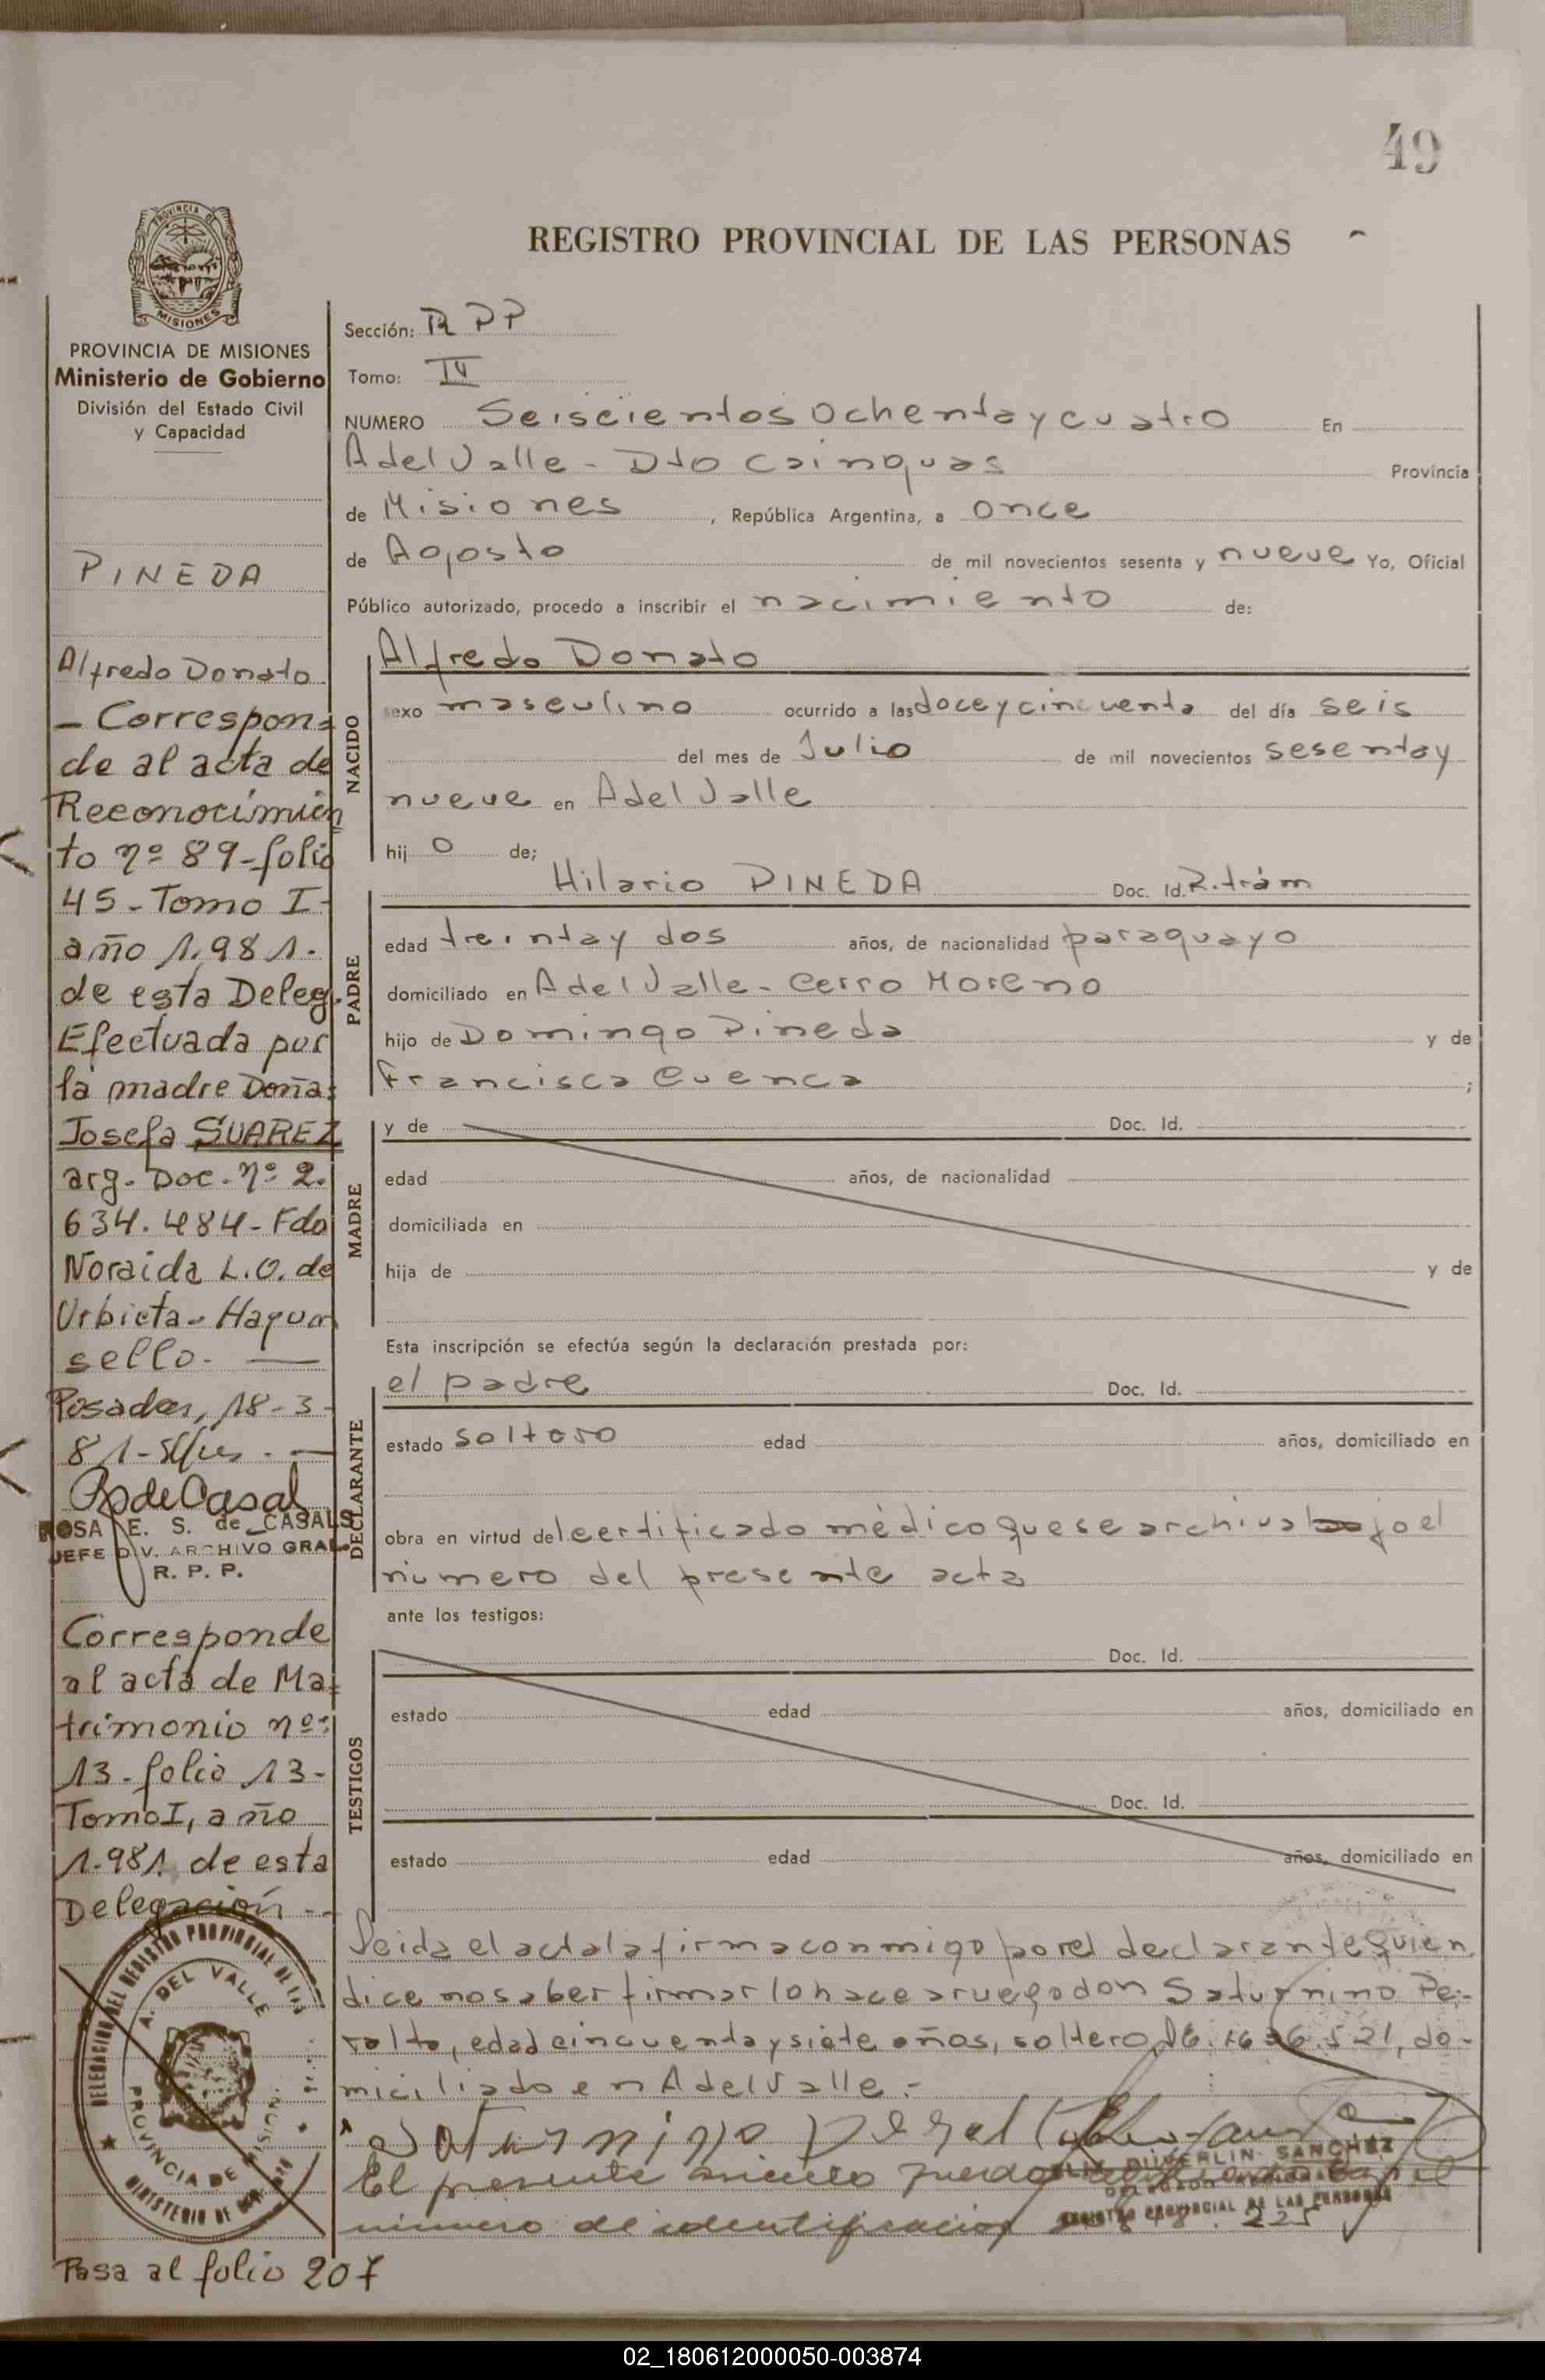 49
REGISTRO PROVINCIAL DE LAS PERSONAS
PROVINCIA DE MISIONES
PROVINCIA DE MISIONES
Ministerio de Gobierno
División del Estado Civil
y Capacidad
PINEDA
Alfredo Donato
- Correspon-
de al acta de
Reconocimien
to nº 89-folio
45-Tomo I-
año 1.981.
de esta Deleg.
Efectuada por
la madre Doña:
Josefa SUAREZ
arg. Doc. nº 2.
634.484-Fdo
Noraida L.O. de
Urbieta- Hay un
sello.
Posadas, 18-3-
81-
R de Casal
ROSA E. S. de CASALS
JEFE DIV. ARCHIVO GRAL.
R. P. P.
Corresponde
al acta de Ma-
trimonio nº:
13-folio 13-
Tomo I, año
1.981 de esta
Delegación.-
DELEGACION DEL REGISTRO PROVINCIAL DE LAS
A. DEL VALLE
PROVINCIA DE MISIONES
MINISTERIO DE
Pasa al folio 207
Sección: R P P
Tomo: IV
NUMERO Seiscientos Ochenta y cuatro En
A del Valle - Dto Cainguas Provincia
de Misiones, República Argentina, a once
de Agosto de mil novecientos sesenta y nueve Yo, Oficial
Público autorizado, procedo a inscribir el nacimiento de:
NACIDO
Alfredo Donato
sexo masculino ocurrido a las doce y cincuenta del día seis
del mes de Julio de mil novecientos sesenta y
nueve en A del Valle
hij o de;
PADRE
Hilario PINEDA Doc. Id. R. trám
edad treinta y dos años, de nacionalidad paraguayo
domiciliado en A del Valle - Cerro Moreno
hijo de Domingo Pineda y de
Francisca Cuenca ;
MADRE
y de Doc. Id.
edad años, de nacionalidad
domiciliada en
hija de y de
Esta inscripción se efectúa según la declaración prestada por:
DECLARANTE
el padre Doc. Id.
estado soltero edad años, domiciliado en
obra en virtud del certificado médico que se archiva bajo el
número del presente acta
ante los testigos:
TESTIGOS
Doc. Id.
estado edad años, domiciliado en
Doc. Id.
estado edad años, domiciliado en
Leida el acta la firma conmigo por el declarante quien
dice no saber firmar lo hace a ruego don Saturnino Pe-
ralta, edad cincuenta y siete años, soltero, 1636.521, do-
miciliado en A del Valle.-
Saturnino Peralta
DUVERLIN SANCHEZ
REGISTRO PROVINCIAL DE LAS PERSONAS
El presente asiento queda el
número de identificación 225
02_180612000050-003874